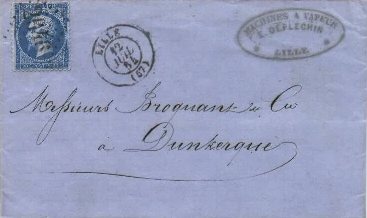 LILLE
12
JUIL
64
(57)
MACHINES A VAPEUR
E. DEPLECHIN
LILLE
Messieurs Broquant & Cie
à Dunkerque